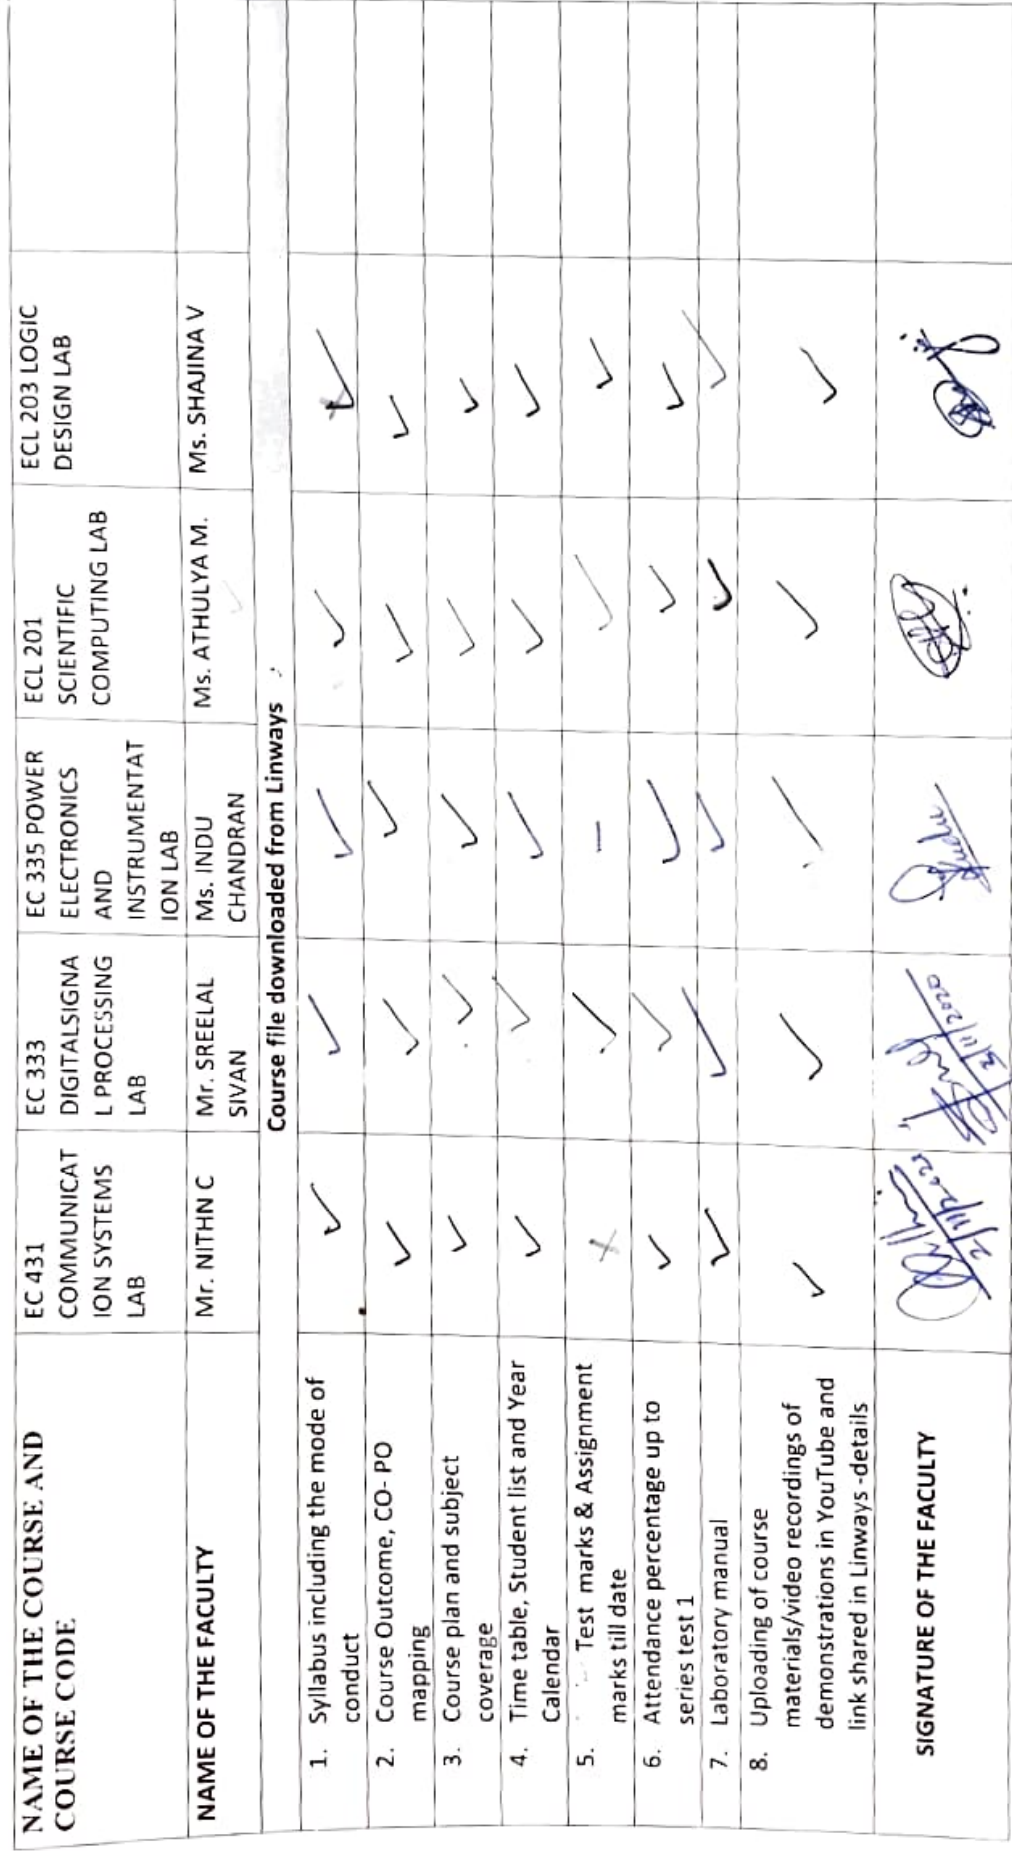 NAME OF THE COURSE AND
COURSE CODE
EC 431
COMMUNICAT
ION SYSTEMS
LAB
EC 333
DIGITALSIGNA
L PROCESSING
LAB
EC 335 POWER
ELECTRONICS
AND
INSTRUMENTAT
ION LAB
ECL 201
SCIENTIFIC
COMPUTING LAB
ECL 203 LOGIC
DESIGN LAB
NAME OF THE FACULTY
Mr. NITHN C
Mr. SREELAL
SIVAN
Ms. INDU
CHANDRAN
Ms. ATHULYA M.
Ms. SHAJINA V
Course file downloaded from Linways
1. Syllabus including the mode of
conduct
✓ ✓ ✓ ✓ ✓
2. Course Outcome, CO- PO
mapping
✓ ✓ ✓ ✓ ✓
3. Course plan and subject
coverage
✓ ✓ ✓ ✓ ✓
4. Time table, Student list and Year
Calendar
✓ ✓ ✓ ✓ ✓
5. Test marks & Assignment
marks till date
x ✓ – ✓ ✓
6. Attendance percentage up to
series test 1
✓ ✓ ✓ ✓ ✓
7. Laboratory manual
✓ ✓ ✓ ✓ ✓
8. Uploading of course
materials/video recordings of
demonstrations in YouTube and
link shared in Linways -details
✓ ✓ ✓ ✓ ✓
SIGNATURE OF THE FACULTY
3/11/2020